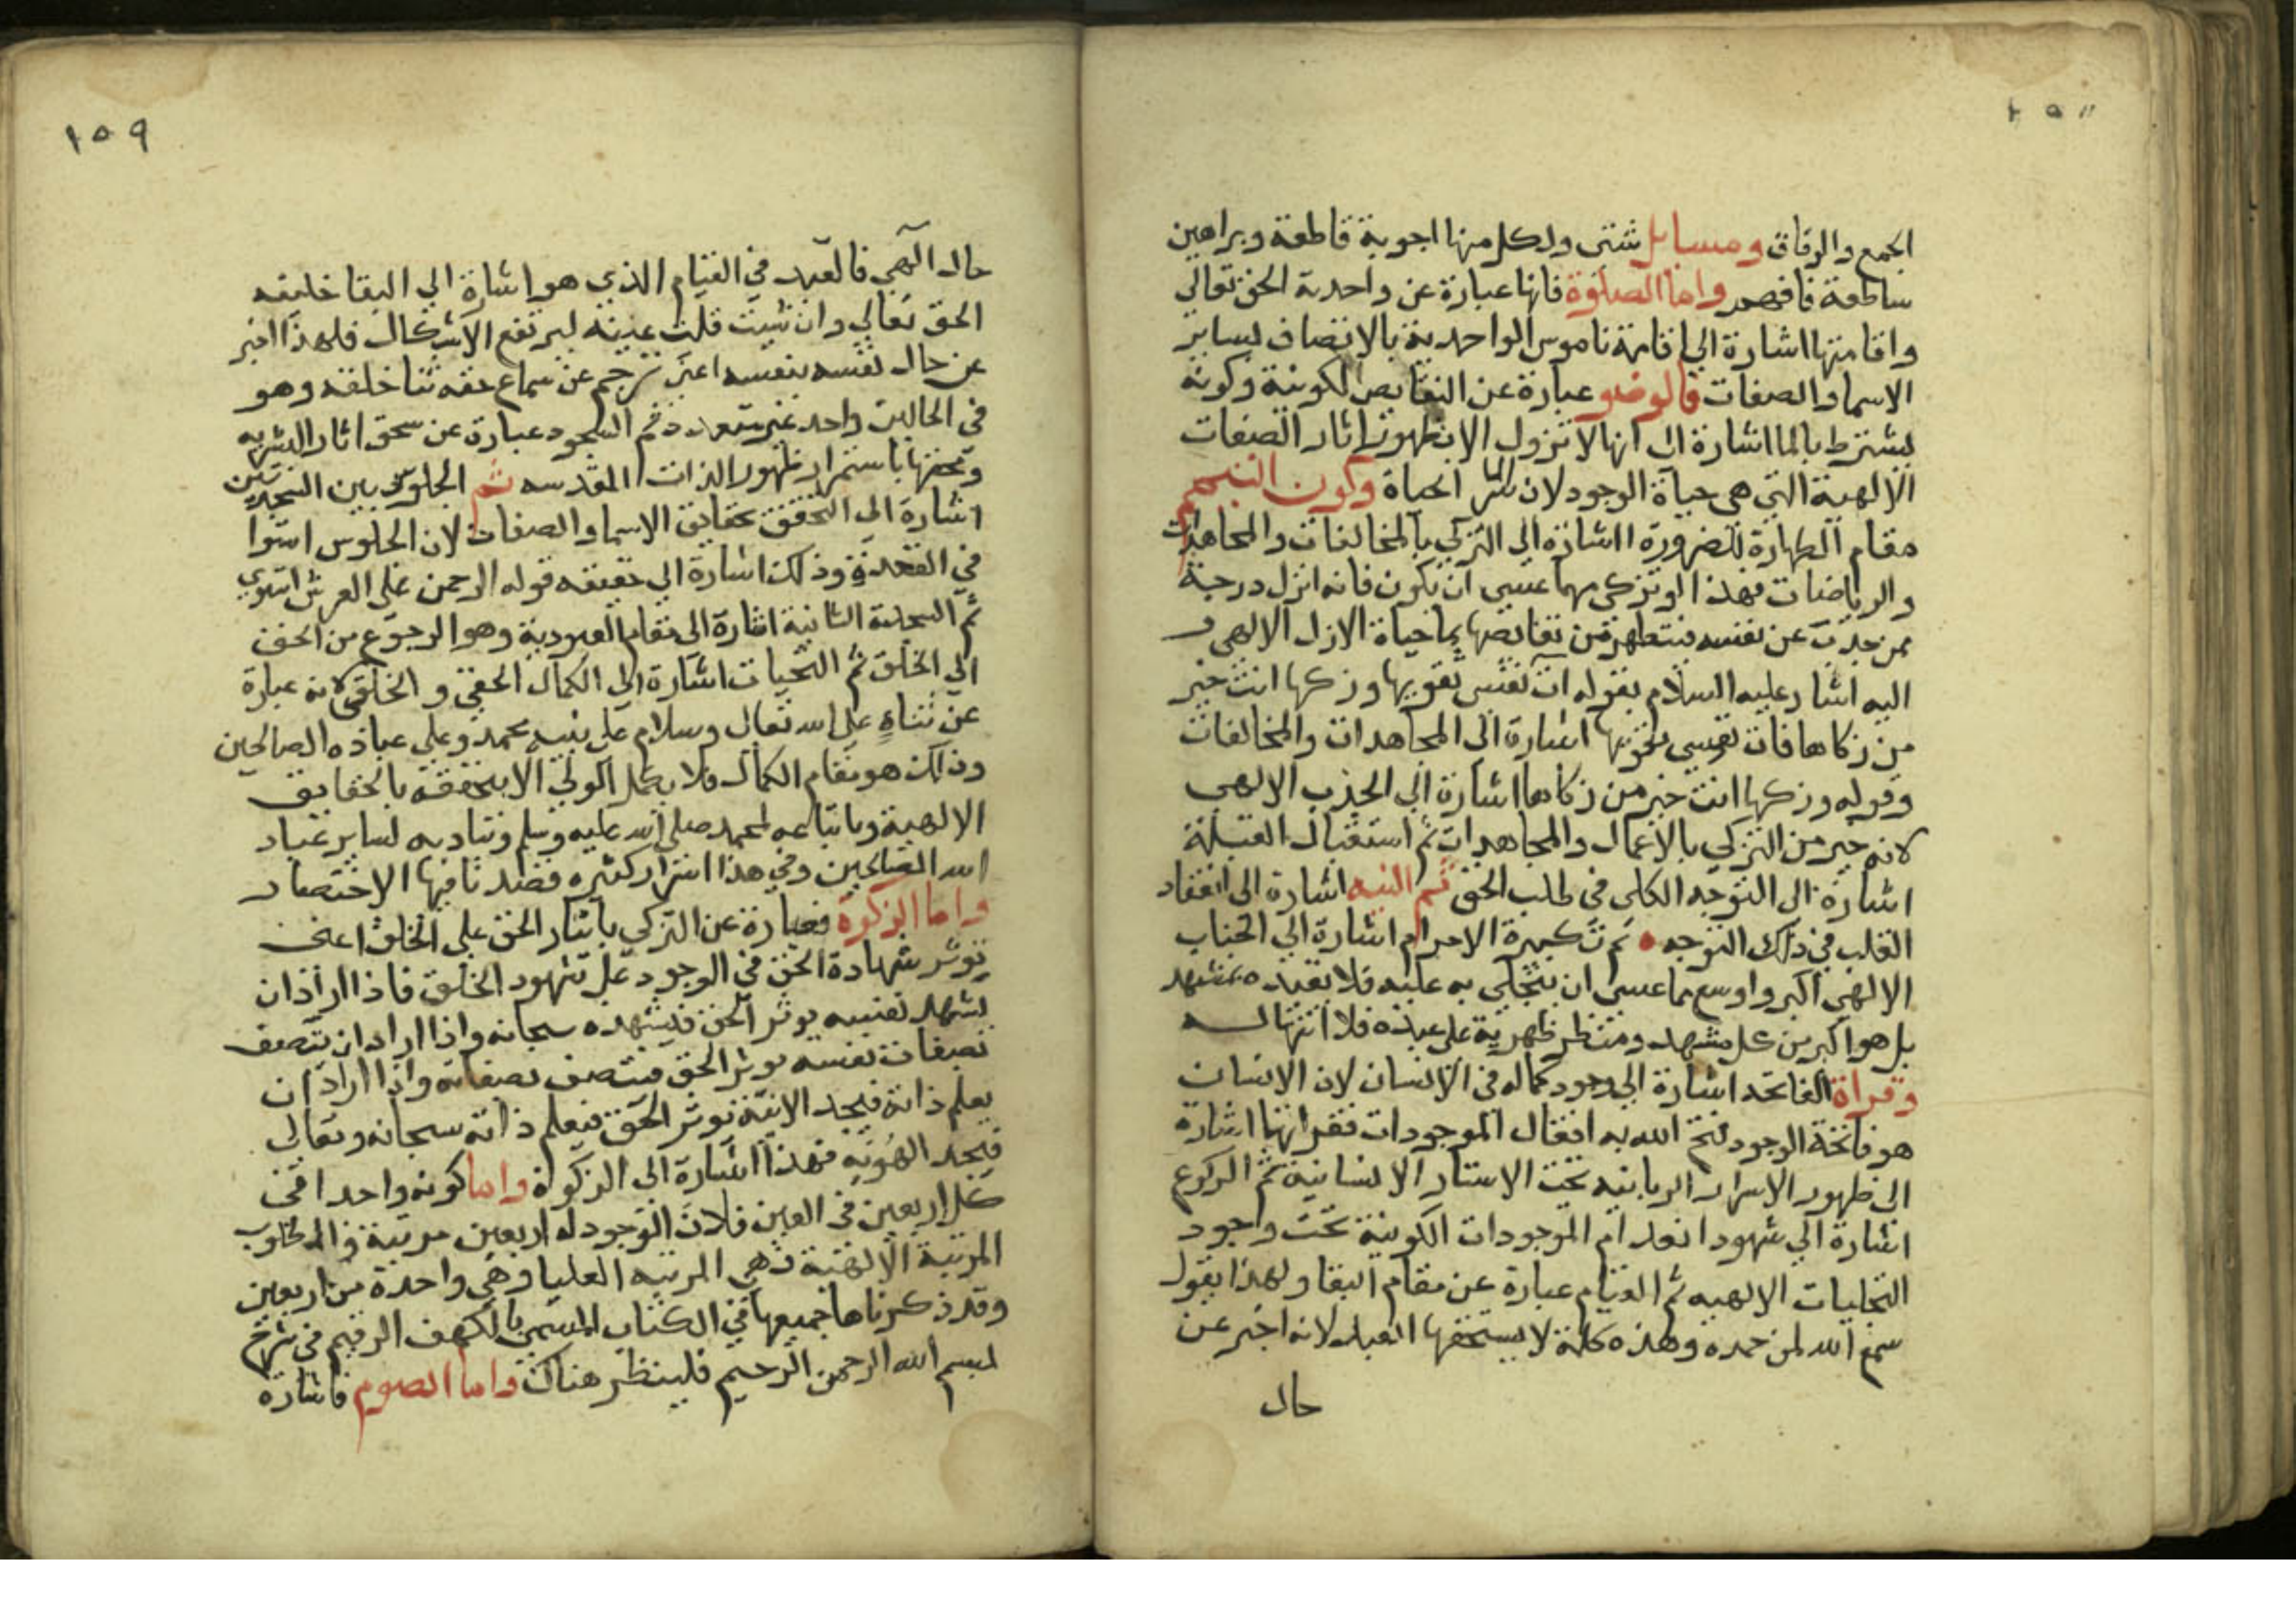 الجمع والرقاق ومسايل شتى ولكل منها اجوبة قاطعة وبراهين
ساطعة فافهم واما الصلوة فانها عبارة عن واحدية الحق تعالى
واقامتها اشارة الى اقامة ناموس الواحدية بالاتصاف لساير
الاسما والصفات فالوضو عبارة عن النقايص الكونية وكونه
يشترط بالما اشارة الى انها لا تزول الا بظهور اثار الصفات
الالهية التي هي حياة الوجود لان الما سر الحياة وكون التيمم
مقام الطهارة للضرورة اشارة الى التزكي بالمخالفات والمجاهدات
والرياضات فهذا لو تزكى مهما عسى ان يكون فانه انزل درجة
ممن جذب عن نفسه فتطهر من نقايصها بما حياة الازل الالهي و
اليه اشار عليه السلام بقوله ات نفسي تقويها وزكها انت خير
من زكاها فات نفسي تقويها اشارة الى المجاهدات والمخالفات
وقوله وزكها انت خير من زكاها اشارة الى الجذب الالهي
لانه خير من التزكي بالاعمال والمجاهدات ثم استقبال القبلة
اشارة الى التوجه الكلى فى طلب الحق ثم النيه اشارة الى انعقاد
القلب في ذلك التوجه ثم تكبيرة الاحرام اشارة الى الجناب
الالهي اكبر واوسع مما عسى ان يتجلى به عليه فلا يقيده بمشهد
بل هو اكبر من كل مشهد ومنظر ظهر به على عبده فلا انتها له
وقراة الفاتحة اشارة الى وجود كماله فى الانسان لان الانسان
هو فاتحة الوجود فتح الله به اقفال الموجودات فقراتها اشارة
الى ظهور الاسرار الربانيه تحت الاستار الانسانية ثم الركوع
اشارة الى شهود انعدام الموجودات الكونية تحت وجود
التجليات الالهيه ثم القيام عبارة عن مقام البقا ولهذا يقول
سمع الله لمن حمده وهذه كلمة لا يستحقها العبد لانه اخبر عن
حال
١٥٩
حال الهي فالعبد في القيام الذي هو اشارة الى البقا خليفه
الحق تعالى وان شيت قلت عينه ليرتفع الاشكال فلهذا اخبر
عن حال نفسه بنفسه اعنى ترجم عن سماع حقه ثنا خلقه وهو
في الحالين واحد غير متعدد ثم السجود عبارة عن سحق اثار البشريه
ومحقها باستمرار ظهور الذات المقدسه ثم الجلوس بين السجدتين
اشارة الى التحقق بحقايق الاسما والصفات لان الجلوس استوا
في القعدة وذلك اشارة الى حقيقه قوله الرحمن على العرش استوى
ثم السجدة الثانية اشارة الى مقام العبودية وهو الرجوع من الحق
الى الخلق ثم التحيات اشارة الى الكمال الحقي والخلقي لانه عبارة
عن ثناء على الله تعالى وسلام على نبيه محمد وعلى عباده الصالحين
وذلك هو مقام الكمال فلا يكمل الولي الا بتحققه بالحقايق
الالهية وباتباعه لمحمد صلى الله عليه وسلم وتنادبه لساير عباد
الله الصالحين وفي هذا اسرار كثيره قصدنا فيها الاختصار
واما الزكوة فعبارة عن التزكي بايثار الحق على الخلق اعنى
يوثر شهادة الحق في الوجود على شهود الخلق فاذا اراد ان
يشهد نفسه يوثر الحق فيشهده سبحانه واذا اراد ان يتصف
بصفات نفسه يوثر الحق فيتصف بصفاته واذا اراد ان
يعلم ذاته فيجد الانية يوثر الحق فيعلم ذاته سبحانه وتعالى
فيجد الهوية فهذا اشارة الى الزكوة واما كونه واحدا في
كل اربعين في العين فلان الوجود له اربعين مرتبة والمطلوب
المرتبة الالهية فهي المرتبه العليا وهي واحدة من اربعين
وقد ذكرناها جميعها في الكتاب المسمى بالكهف الرقيم فى شرح
بسم الله الرحمن الرحيم فلينظر هناك واما الصوم فاشارة